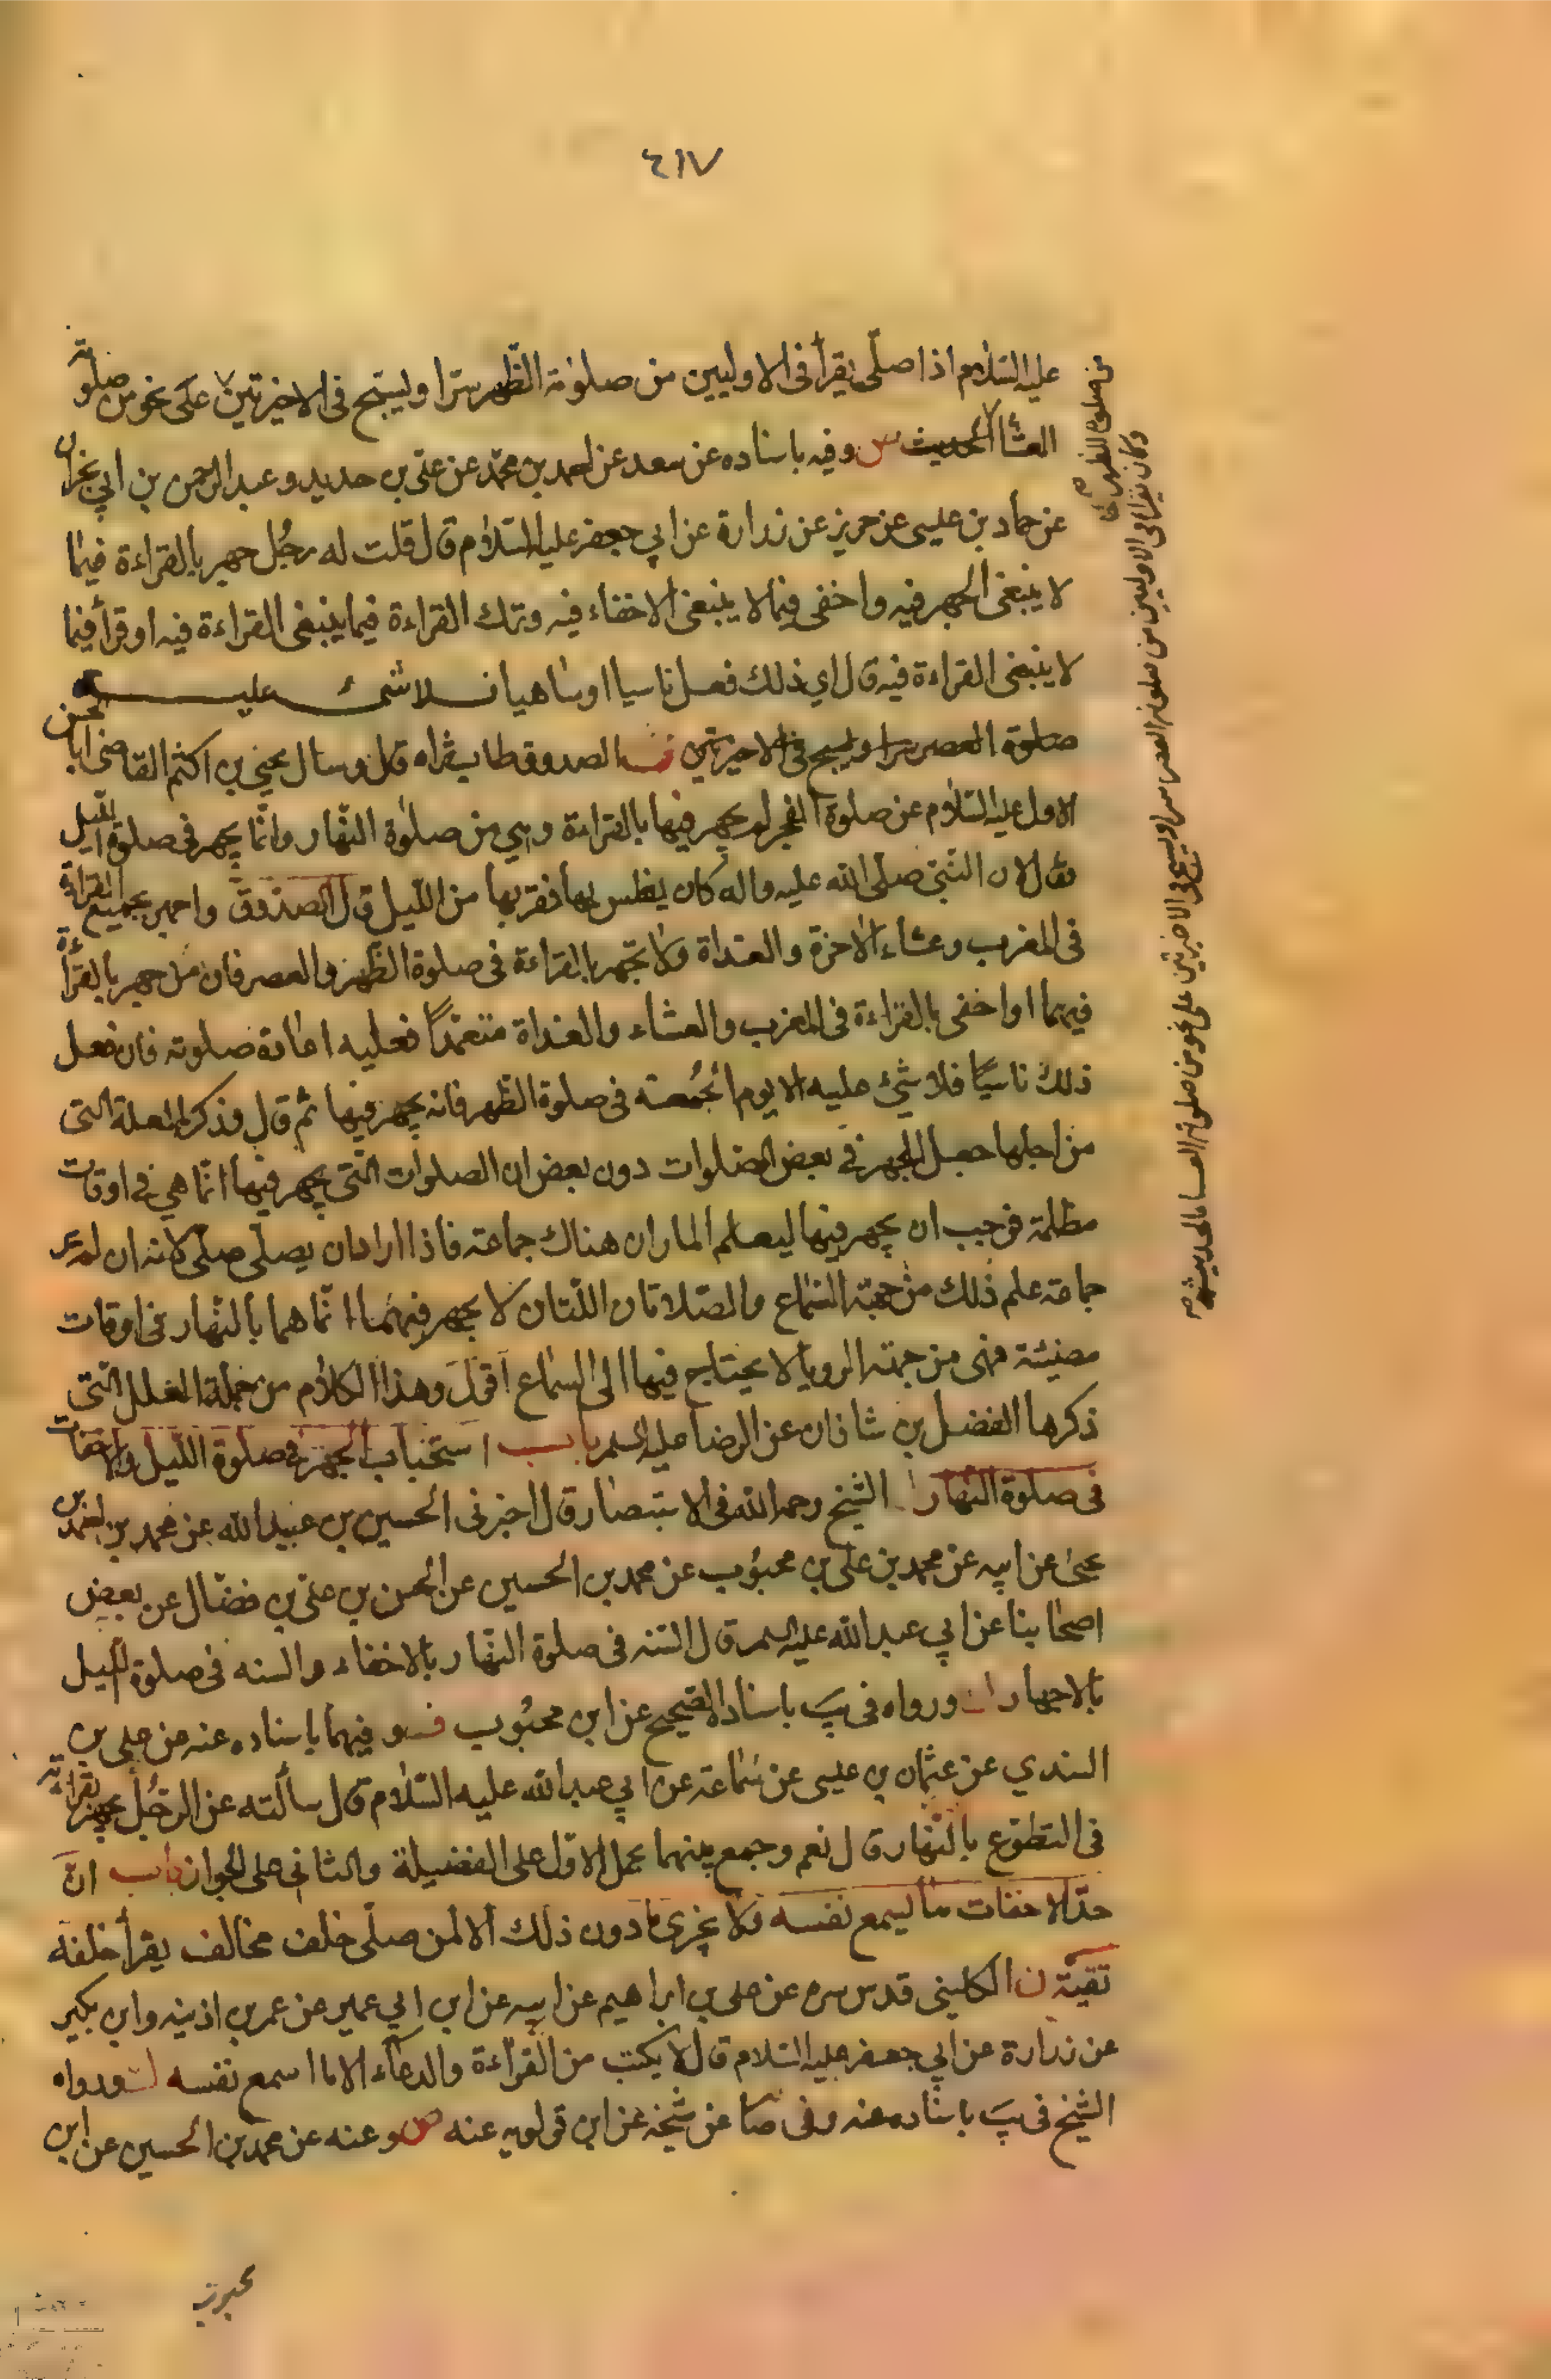 ٤١٧
عليه السلام اذا صلّى يقرأ فى الاوليين من صلوة الظهر سرّا ويسبح فى الاخيرتين على نحو من صلوته
العشا الحديث س وفيه باسناده عن سعد عن احمد بن محمّد عن على بن حديد وعبد الرحمن بن ابي نجران
عن حماد بن عيسى عن حريز عن زرارة عن ابي جعفر عليه السّلام قال قلت له رجُل جهر بالقراءة فيما
لا ينبغى الجهر فيه واخفى فيما لا ينبغى الاخفاء فيه وترك القراءة فيما ينبغى القراءة فيه او قرأ فيما
لا ينبغى القراءة فيه قال اي ذلك فعل ناسيا او ساهيا فلا شىء عليه
صلوة العصر سرا ويسبح فى الاخيرتين الصدوق طاب ثراه قال وسال يحيي بن اكثم القاضى ابا الحسن
الاول عليه السّلام عن صلوة الفجر لم يجهر فيها بالقراءة وهي من صلوة النّهار وانّما يجهر فى صلوة الليل
فقال لان النّبى صلّى الله عليه واله كان يغلس بها فقربها من اللّيل قال الصدوق واجهر بجميع القراءة
فى المغرب وعشاء الاخرة والغداة ولا تجهر بالقراءة فى صلوة الظهر والعصر فان من جهر بالقرأة
فيهما او اخفى بالقراءة فى المغرب والعشاء والغداة متعمّدًا فعليه اعادة صلوته فان فعل
ذلك ناسيًا فلا شيئ عليه الا يوم الجُمعة فى صلوة الظهر فانه يجهر فيها ثم قال وذكر العلة التى
من اجلها جعل الجهر فى بعض الصلوات دون بعض ان الصلوات الّتى يجهر فيها انّما هي فى اوقات
مظلمة فوجب ان يجهر فيها ليعلم المار ان هناك جماعة فاذا اراد ان يصلّى صلّى لانه ان لم ير
جماعة علم ذلك من جهة السّماع والصّلاتان اللّتان لا يجهر فيهما انّما هما بالنّهار فى اوقات
مضيئة فهى من جهة الرويا لا يحتاج فيها الى السماع اقول وهذا الكلام من جملة العلل الّتى
ذكرها الفضل بن شاذان عن الرضا عليه السلم باب استحباب الجهر فى صلوة اللّيل والاخفات
فى صلوة النهار الشيخ رحمه الله فى الاستبصار قال اخبرنى الحسين بن عبيد الله عن محمد بن احمد بن
يحيى عن ابيه عن محمد بن على بن محبُوب عن محمد بن الحسين عن الحسن بن علىّ بن فضّال عن بعض
اصحابنا عن ابي عبد الله عليه السلم قال السّنه فى صلوة النّهار بالاخفاء والسنه فى صلوة الليل
بالاجهار ورواه فى يب باسناد الصّحيح عن ابن محبُوب وفيهما باسناده عنه عن على بن
السندي عن عثمان بن عيسى عن سماعة عن ابي عبد الله عليه السّلام قال سألته عن الرجُل يجهر بقرائته
فى التطوّع بالنّهار قال نعم وجمع بينهما بحمل الاوّل على الفضيلة والثانى على الجواز باب انّ
حدّ الاخفات ما يسمع نفسه فلا يجزى ما دون ذلك الا لمن صلّى خلف مخالف يقرأ خلفه
تقيّة ن الكلينى قدس سره عن على بن ابراهيم عن ابيه عن ابن ابي عمير عن عمر بن اذينه وابن بكير
عن زرارة عن ابي جعفر عليه السّلام قال لا يكتب من القرّاءة والدعاء الا ما اسمع نفسه ورواه
الشيخ فى يب باسناده عنه وفى صا عن شيخه عن ابن قولويه عنه وعنه عن محمد بن الحسين عن ابن
محبوب
وكان يقرأ فى الاوليين من صلوة العصر سرا ويسبح فى الاخيرتين على نحو من صلوة العشا الحديث
من صلوة الظهر